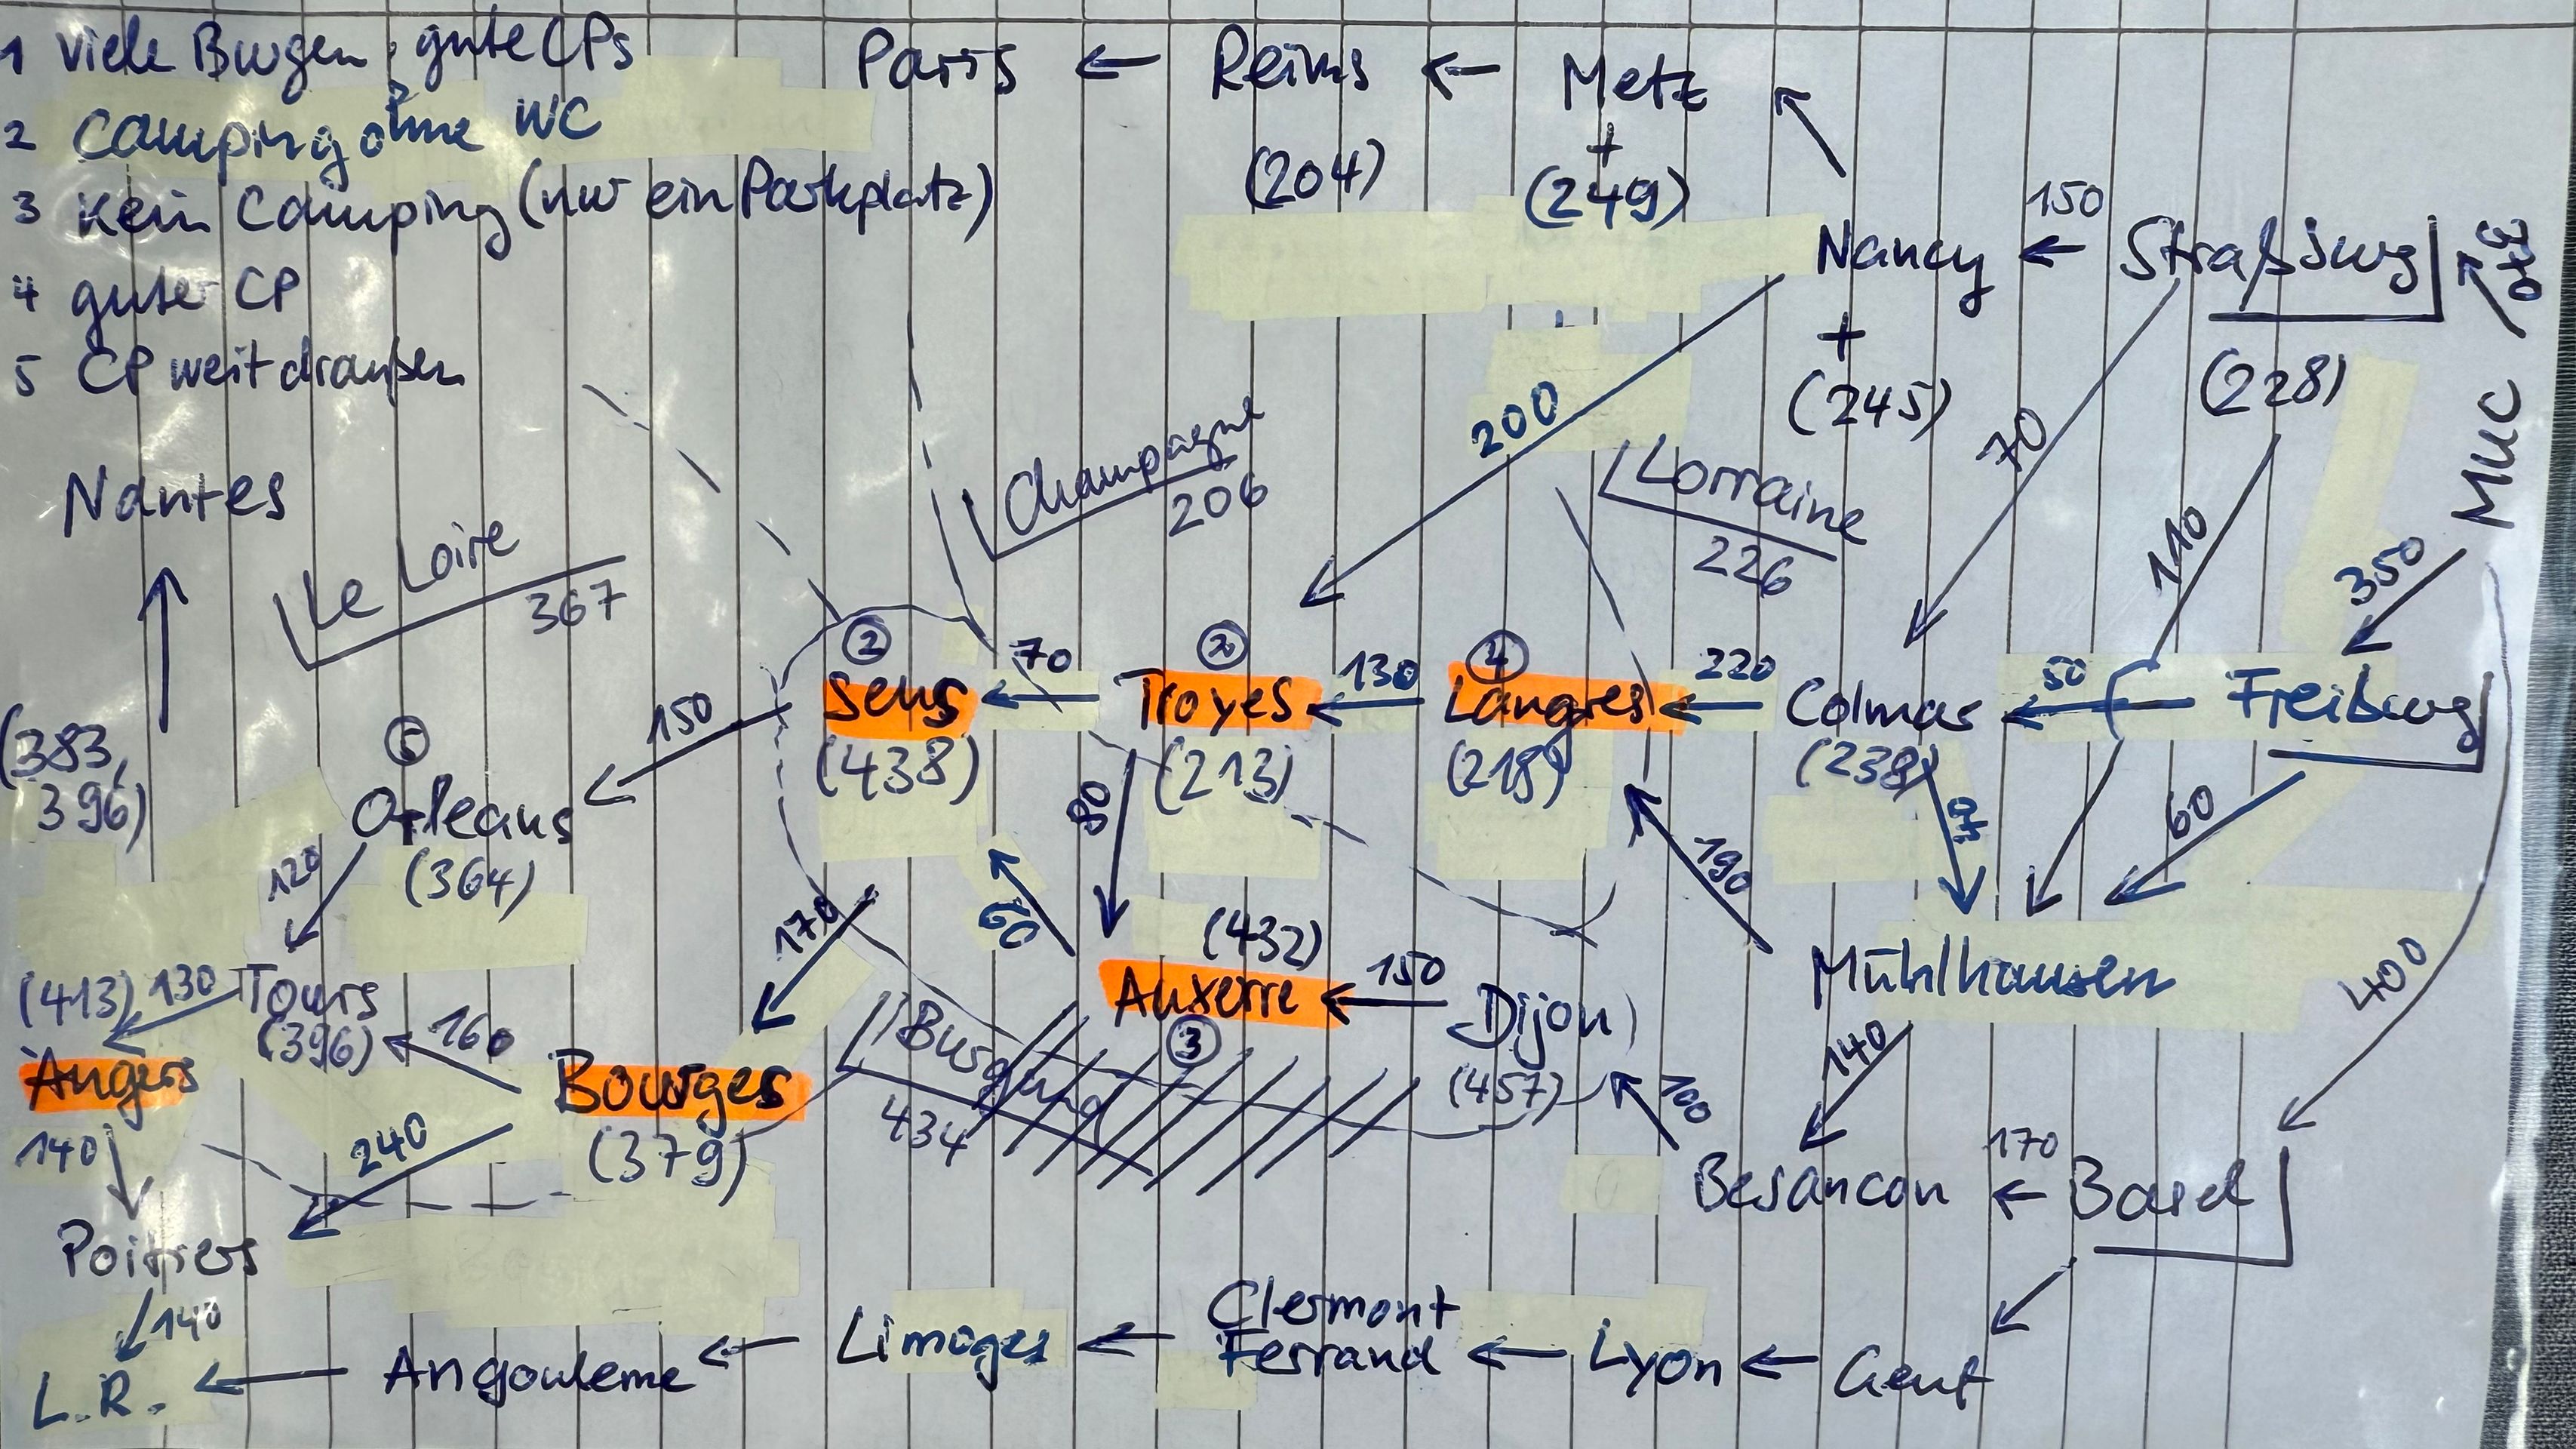 1 viele Burgen, gute CPs
2 Camping ohne WC
3 Kein Camping (nur ein Parkplatz)
4 guter CP
5 CP weit draußen
Paris ← Reims ← Metz
(204)
+
(249)
Nancy ← Straßburg
150
+
(245)
(228)
Muc
200
70
110
350
400
Champagne
206
Lorraine
226
Nantes
Le Loire
367
(383,
396)
② ②
Sens ← Troyes ← Langres ← Colmar ← Freiburg
70 130 220 50
(438) (213) (218) (238)
150
⑤
Orleans
(364)
120
80
60
190
60
170
(432)
Auxerre ← Dijon
150
③
(457)
Mühlhausen
(413) 130 Tours
(396)
160
Angers
Bourges
(379)
Burgund
434
140
100
140
240
Besancon ← Basel
170
Poitiers
140
L.R. ← Angouleme ← Limoges ← Clermont
Ferrand ← Lyon ← Genf